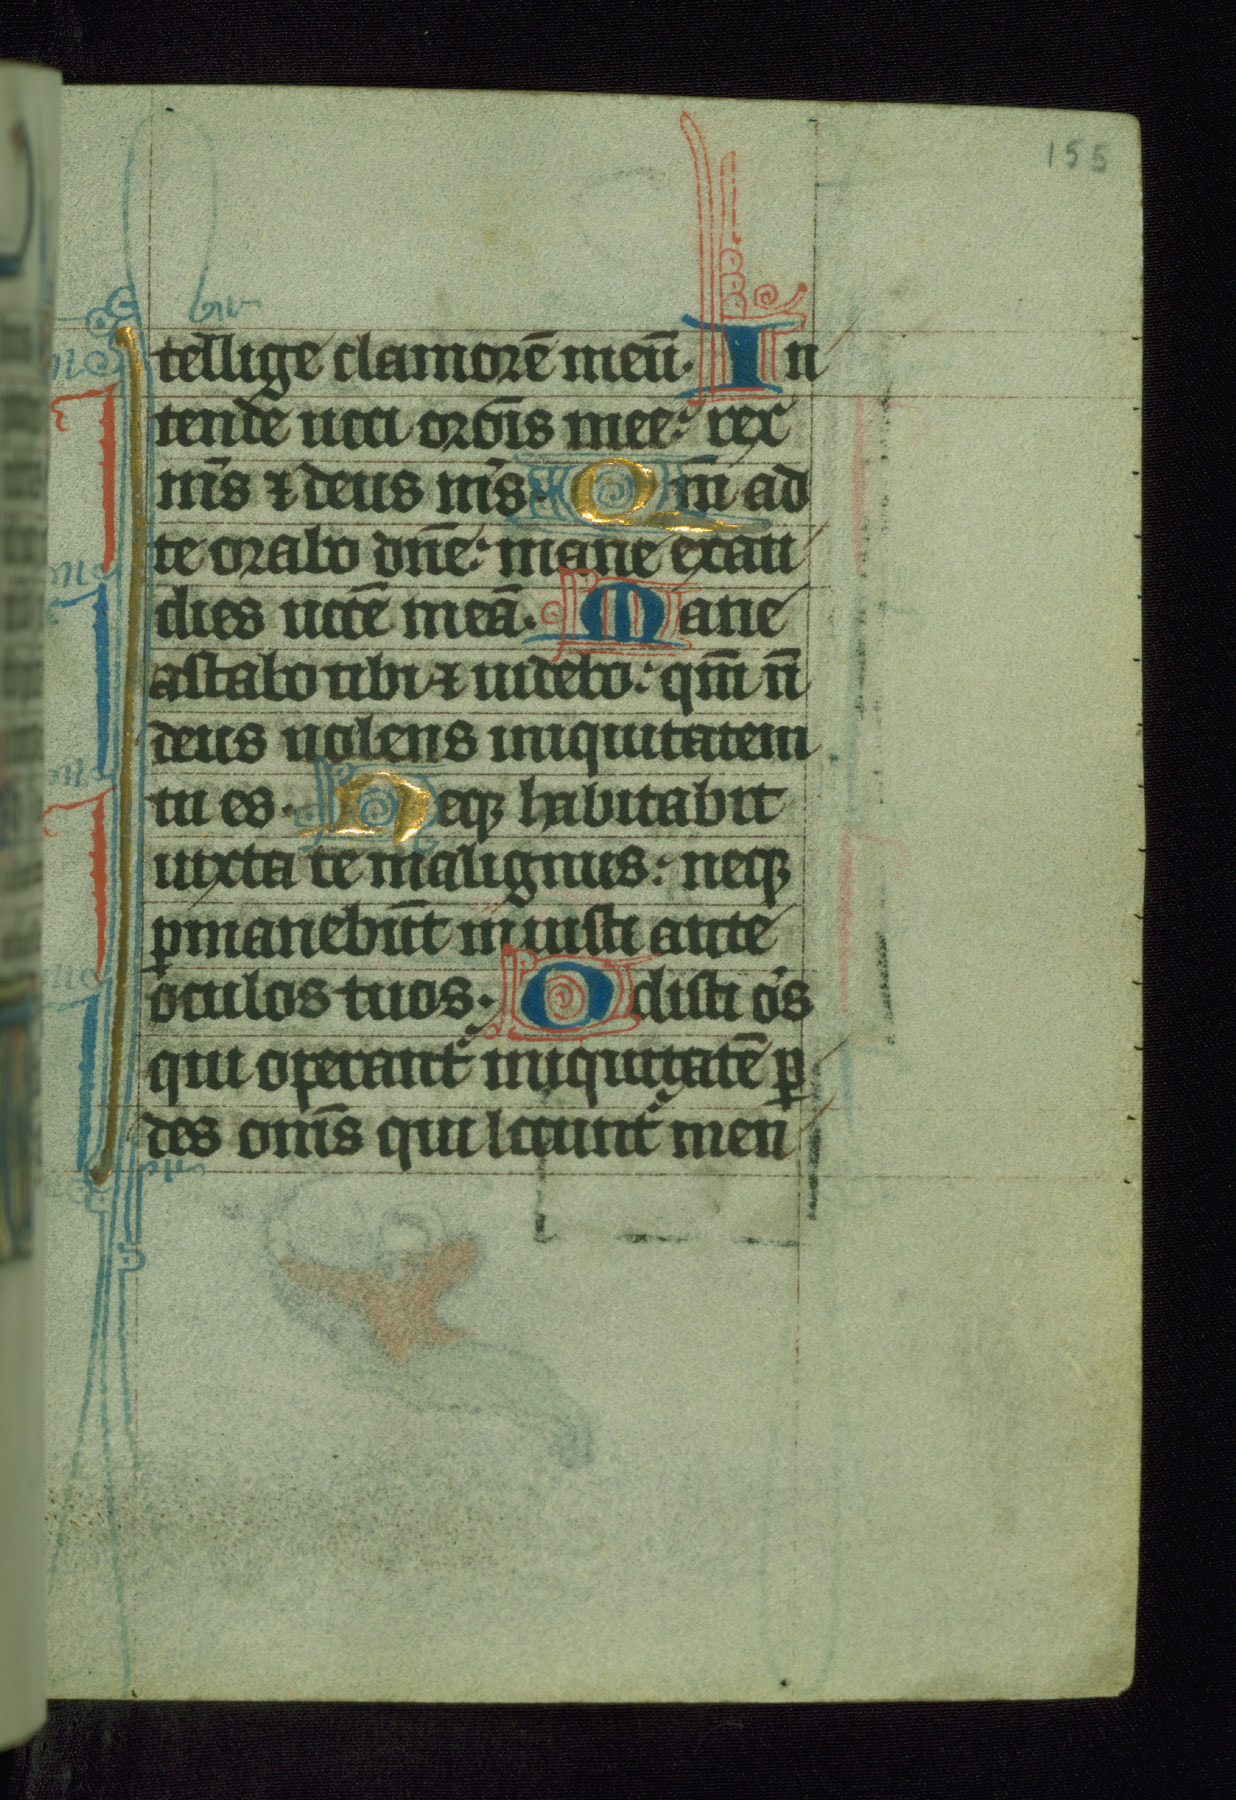 155
tellige clamorē meū. In
tende uoci orōīs mee: rex
m̄s ⁊ deus m̄s. Qm̄ ad
te orabo dn̄e: mane exau
dies uocē meā. Mane
astabo tibi ⁊ uidebo: qm̄ n̄
deus uolens iniquitatem
tu es. Neqꝫ habitabit
iuxta te malignus: neqꝫ
ꝑmanebūt iniusti ante
oculos tuos. Odisti oīs
qui operant᷑ iniquitatē ꝑ
des om̄s qui locunt᷑ men